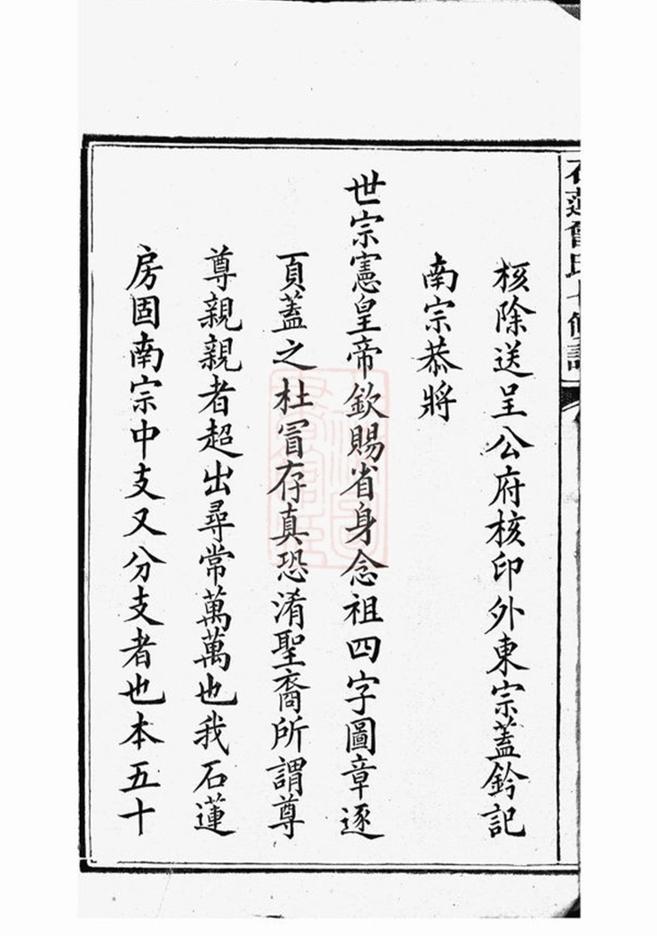 石蓮曾氏七修譜
核除送呈公府核印外東宗蓋鈐記
南宗恭將
世宗憲皇帝欽賜省身念祖四字圖章逐
頁蓋之杜冒存真恐淆聖裔所謂尊
尊親親者超出尋常萬萬也我石蓮
房固南宗中支又分支者也本五十